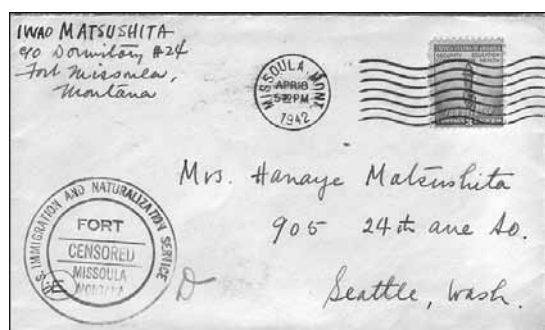 IWAO MATSUSHITA
c/o Dormitory #24
Fort Missoula,
Montana
MISSOULA, MONT.
APR 8
PM
1942
UNITED STATES OF AMERICA
3
Mrs. Hanaye Matsushita
905 24th ave So.
Seattle, Wash.
U.S. IMMIGRATION AND NATURALIZATION SERVICE
FORT
CENSORED
MISSOULA
MONTANA
E
D